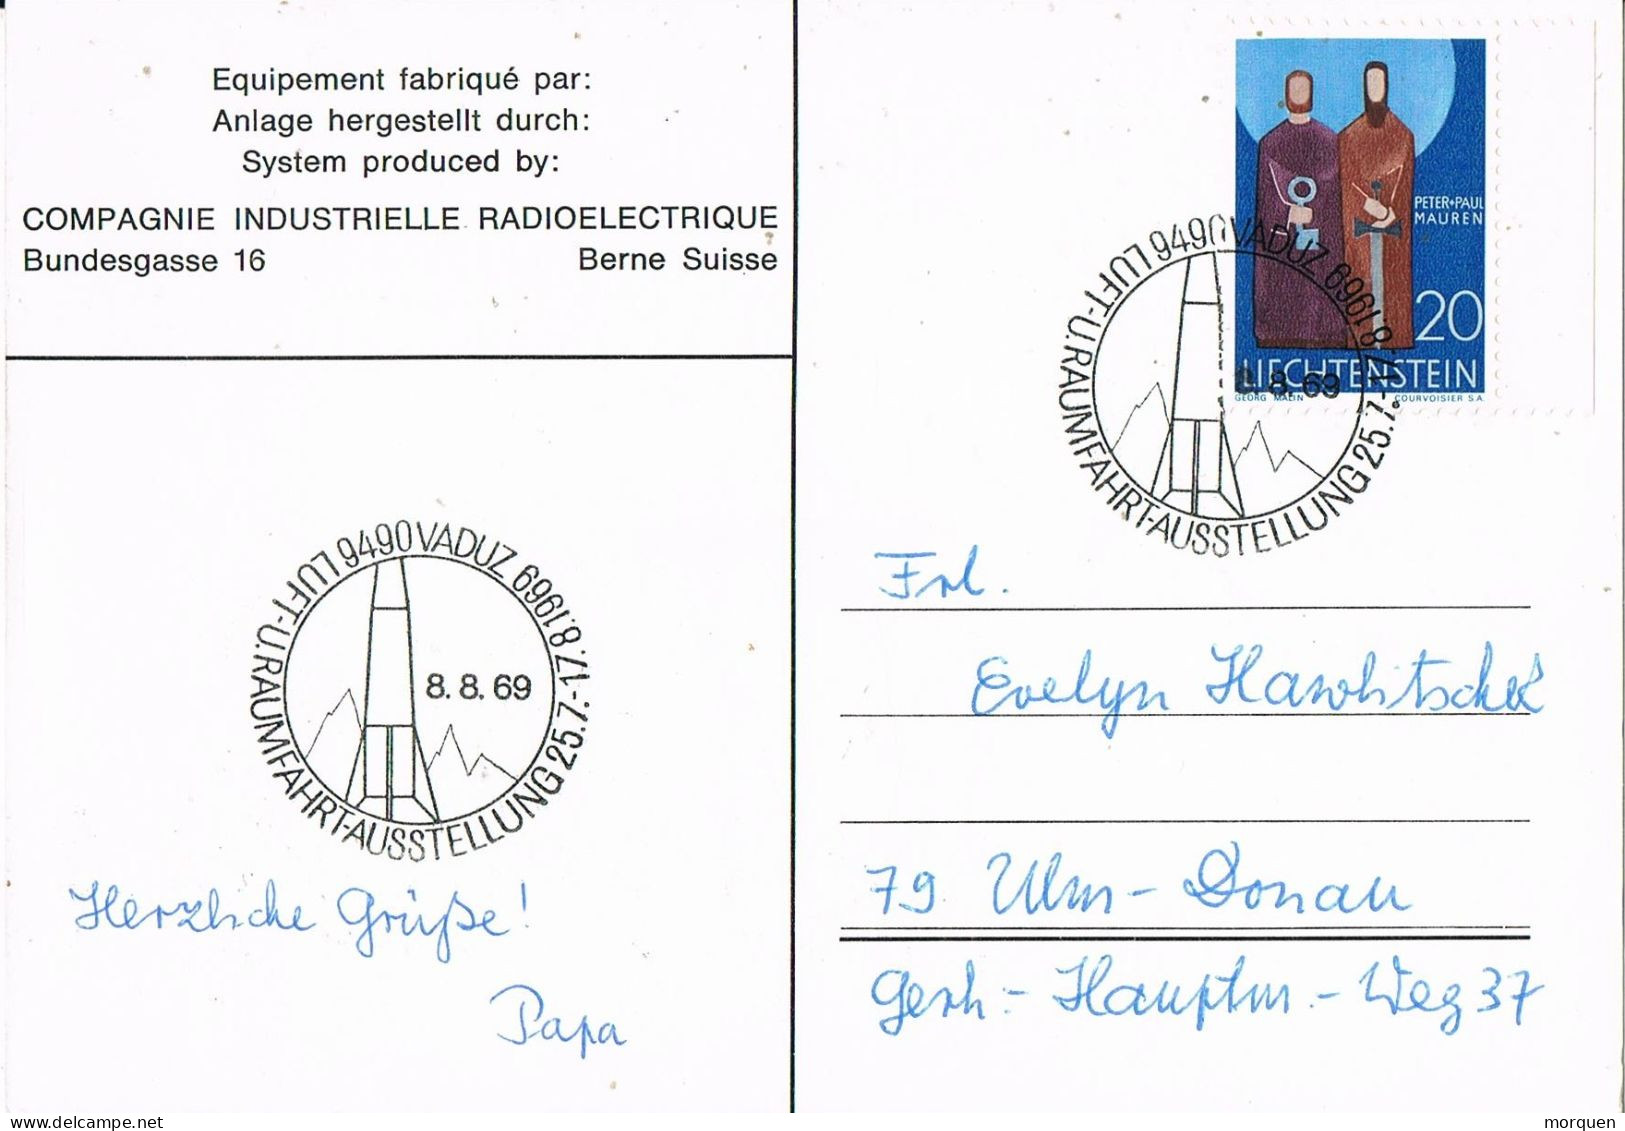 Equipement fabriqué par:
Anlage hergestellt durch:
System produced by:
COMPAGNIE INDUSTRIELLE RADIOELECTRIQUE
Bundesgasse 16 Berne Suisse
PETER+PAUL
MAUREN
20
LIECHTENSTEIN
GEORG MALIN COURVOISIER S.A.
9490 VADUZ
LUFT-U.RAUMFAHRT-AUSSTELLUNG 25.7.-17.8.1969
8.8.69
9490 VADUZ
LUFT-U.RAUMFAHRT-AUSSTELLUNG 25.7.-17.8.1969
8.8.69
Herzliche Grüße!
Papa
Frl.
Evelyn Hawlitschek
79 Ulm-Donau
Gerh.-Hauptm.-Weg 37
www.delcampe.net
morquen